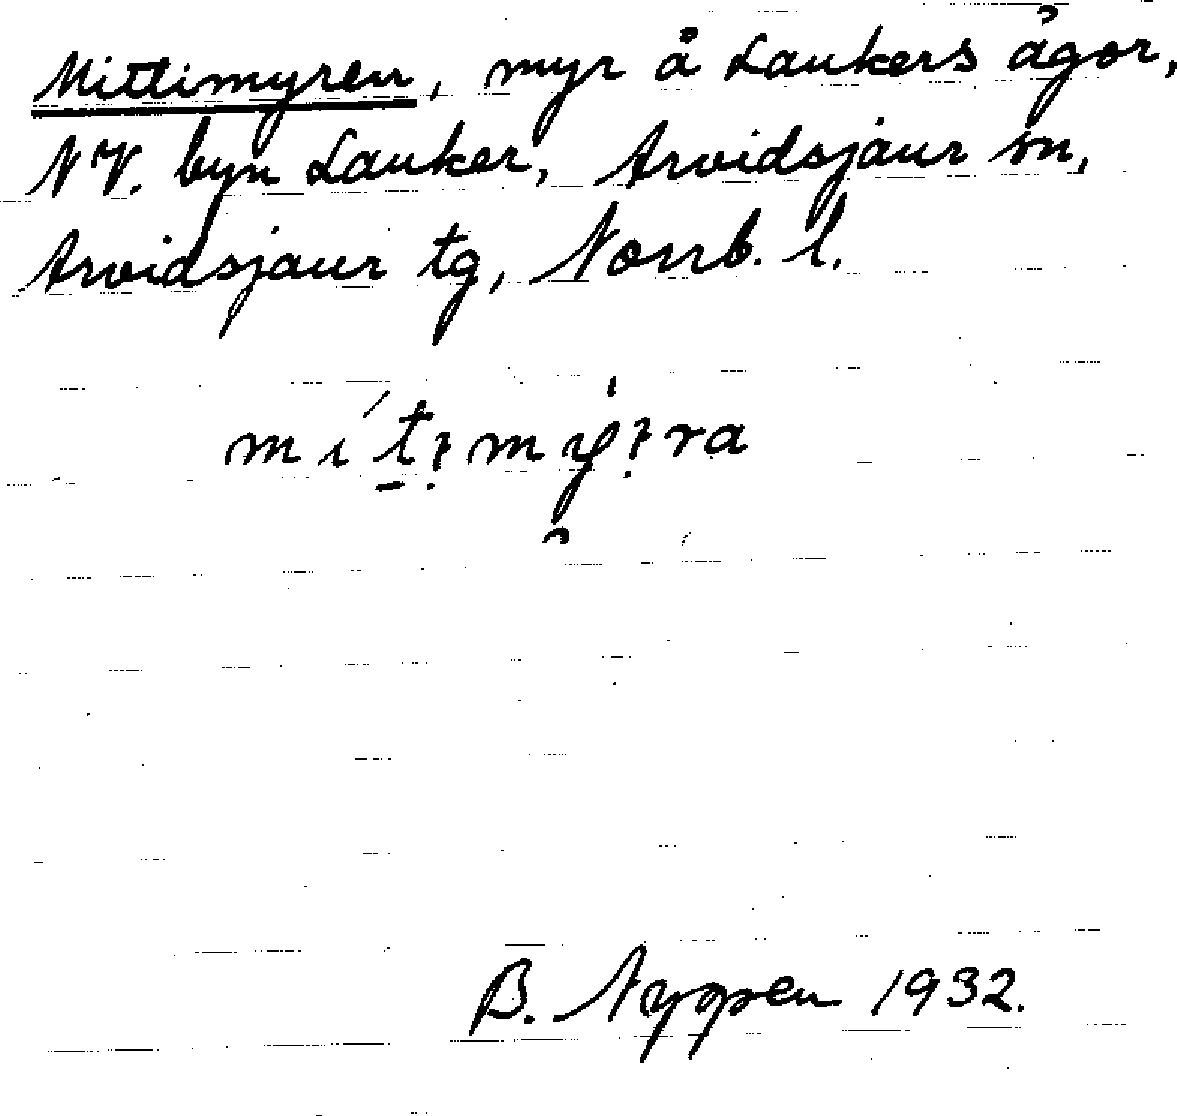 Mittimyren, myr å Laukers ågor,
NV. byn Lauker, Arvidsjaur sn,
Arvidsjaur tg, Norrb. l.
B. Nyppen 1932.